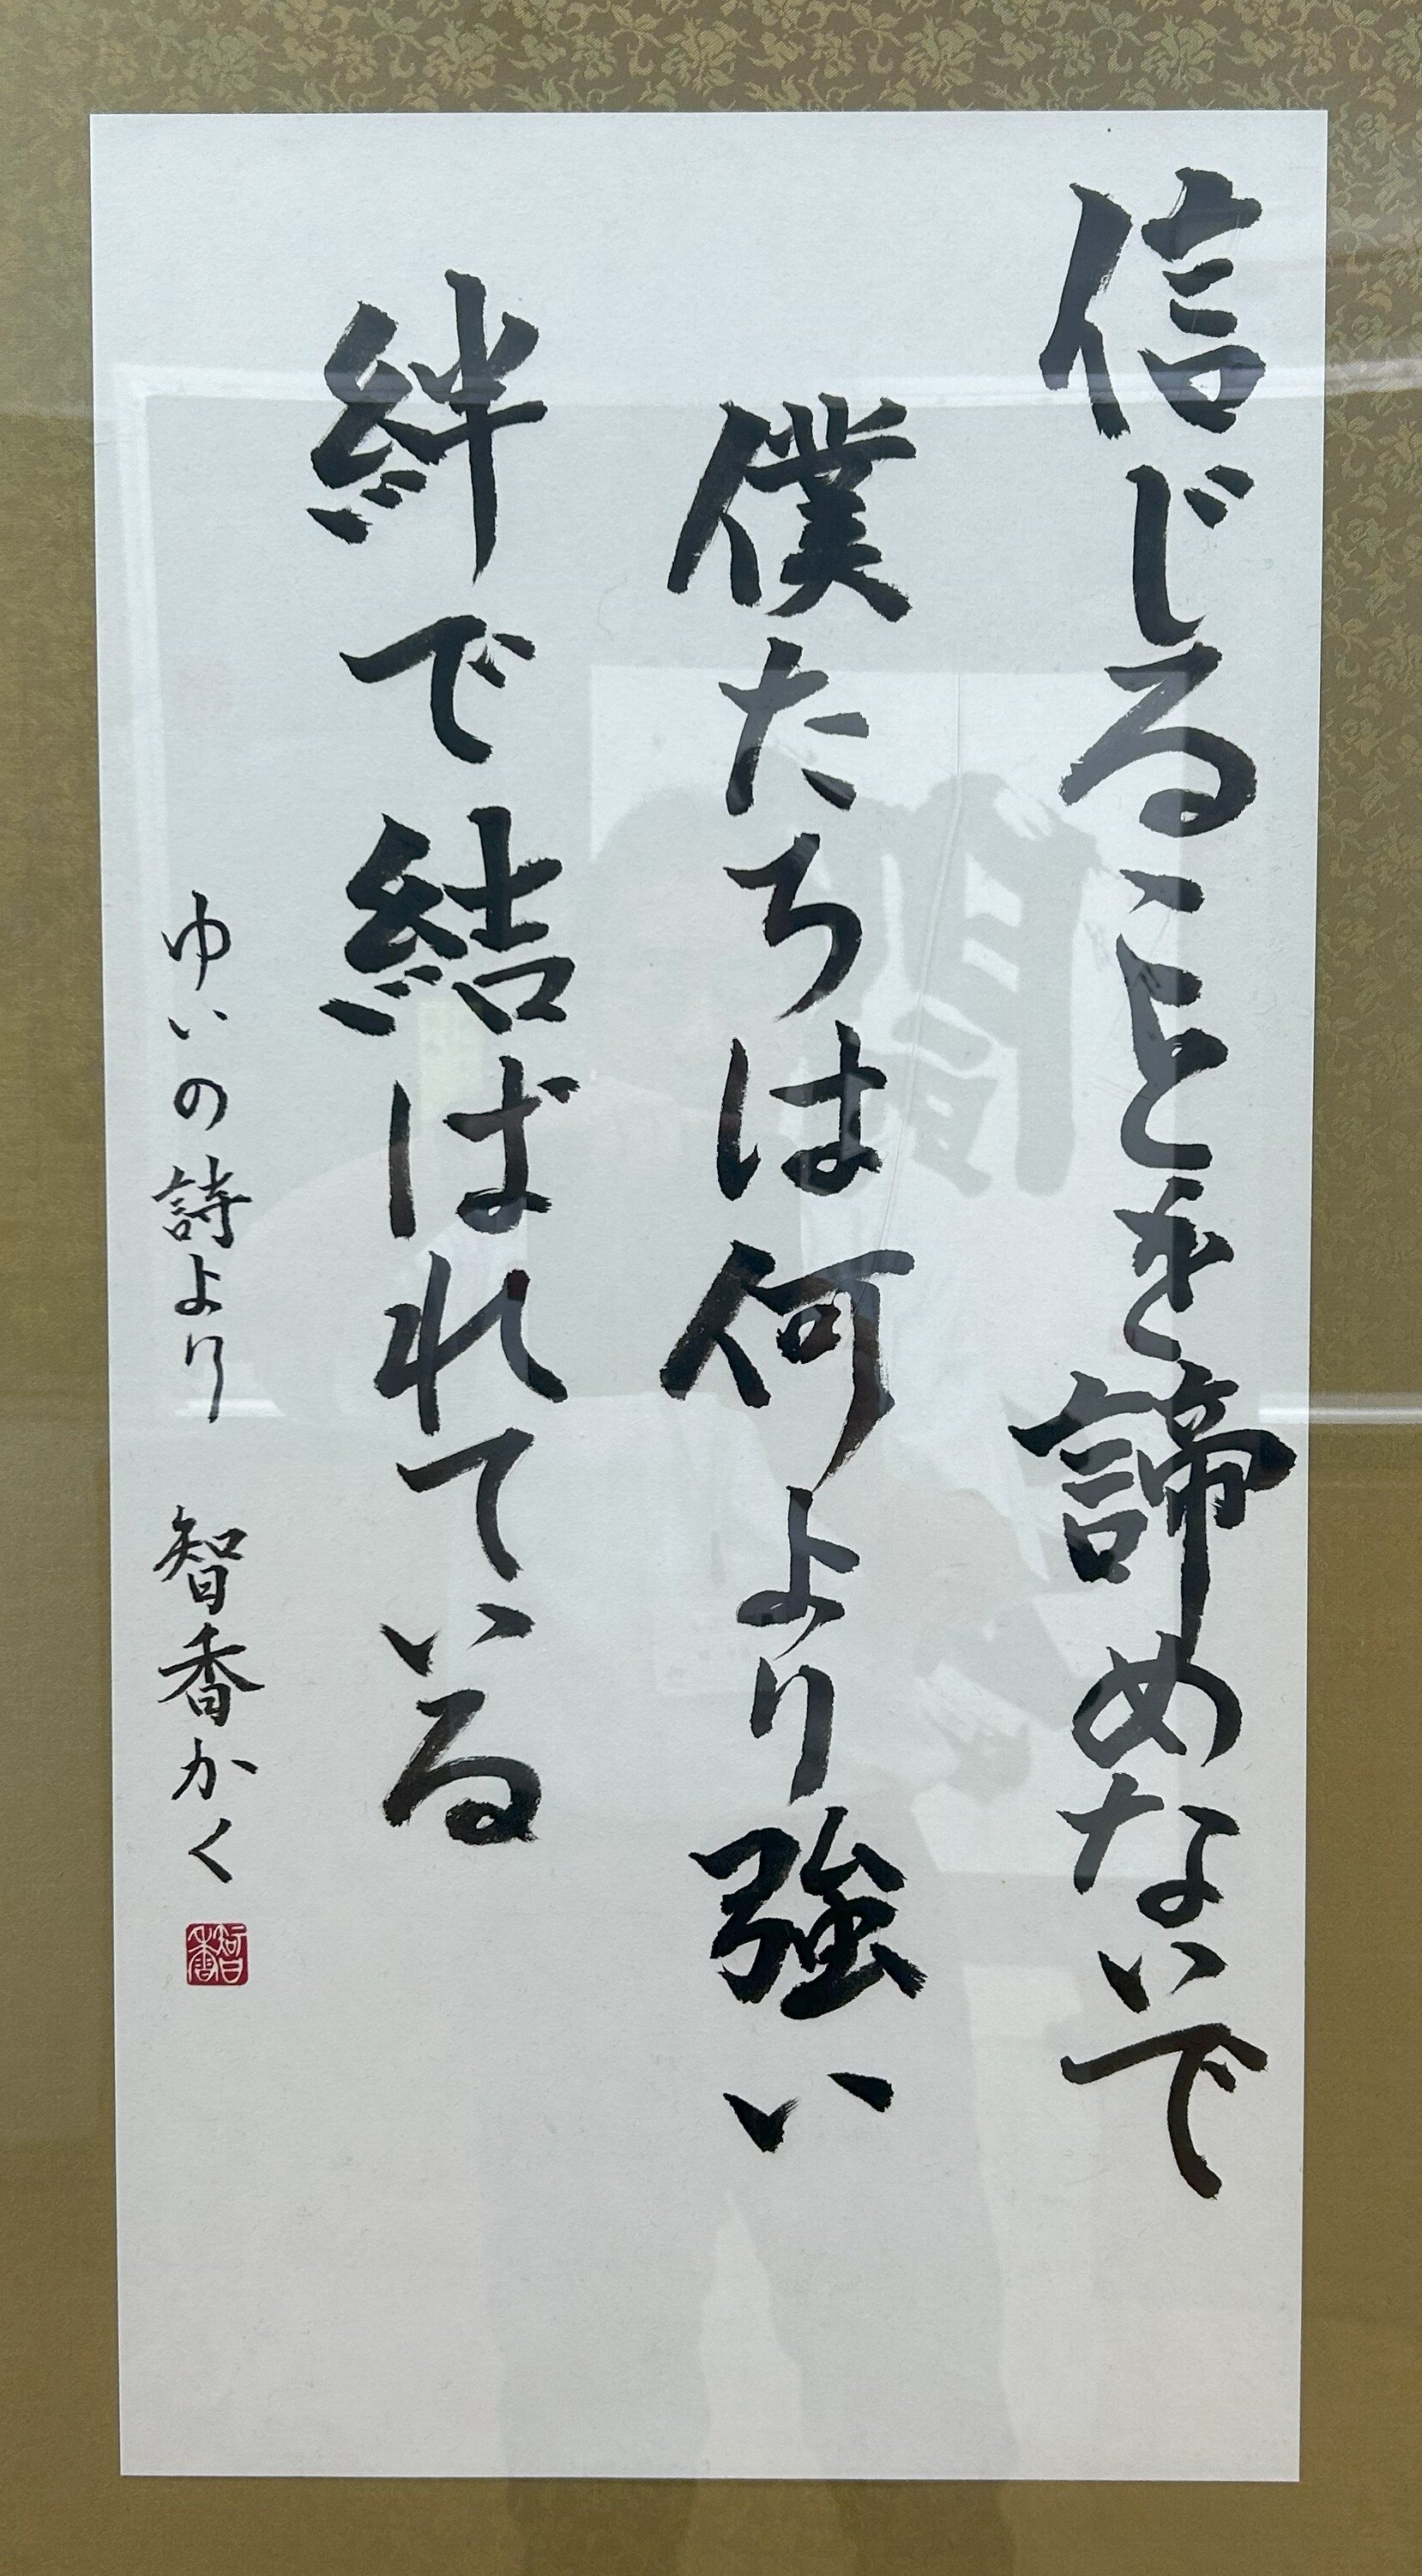 信じることを諦めないで
僕たちは何より強い
絆で結ばれている
ゆいの詩より 智香かく
智香